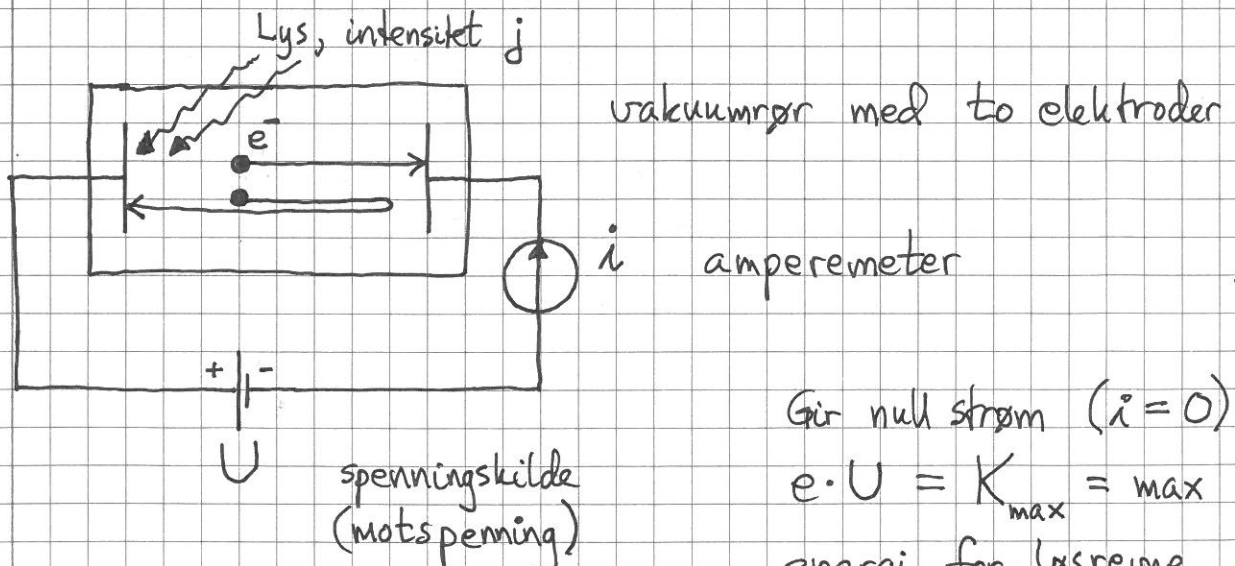 Lys, intensitet j
vakuumrør med to elektroder
e⁻
i amperemeter
+ -
U
spenningskilde
(motspenning)
Gir null strøm (i = 0)
e·U = K_max = max
energi for løsrevne